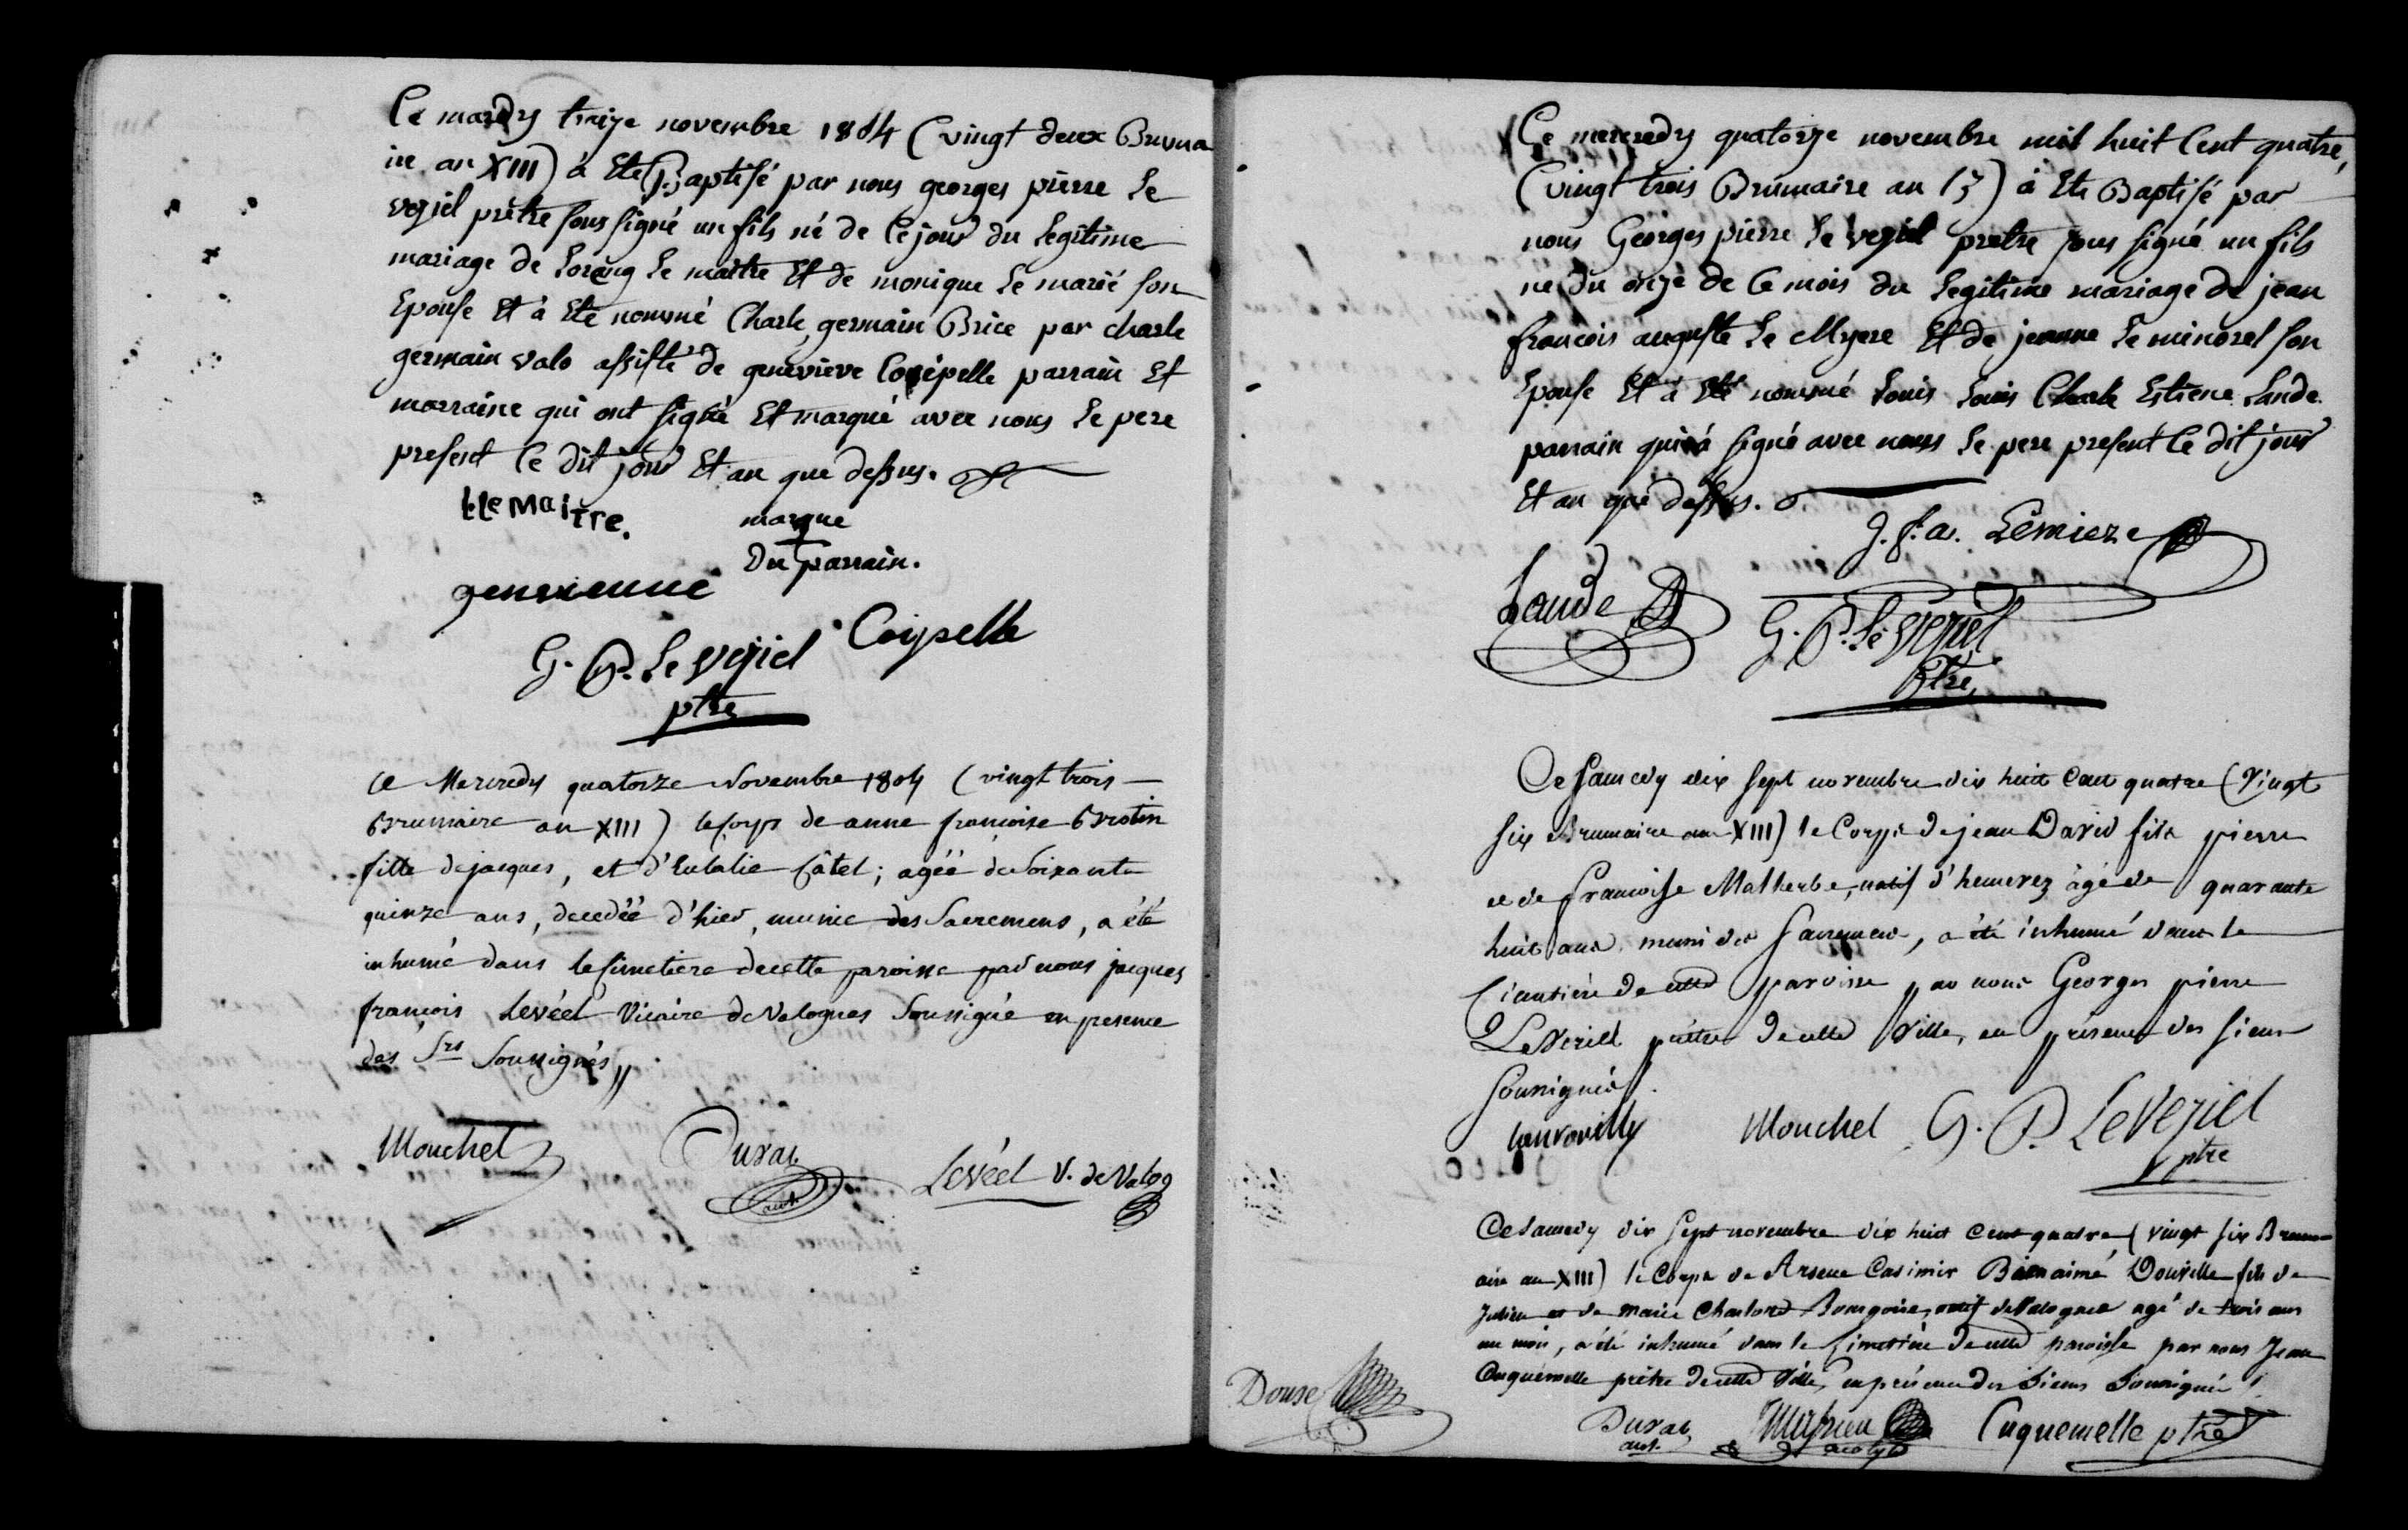 Ce mardy treize novembre 1804 (vingt deux Bruma
ire an XIII) à Eté Baptisé par nous georges pierre Le
veziel prêtre sous signé un fils né de ce jour du Legitime
mariage de Le maitre Et de monique Le marié son
Epouse Et à Eté nommé Charle, germain Brice par charle
germain valo assisté de geneviève Coispelle parrain Et
marraine qui ont signé Et marqué avec nous Le pere
present ce dit jour Et an que dessus.
Le Maitre.
marque
Du parrain.
genevieuve
Coispelle
G. P. Le veziel
ptre
Ce Mercredy quatorze Novembre 1804 (vingt trois
Brumaire an XIII) le corps de anne françoise Brotin
fille de jacques, et d'Eulalie Câtel; agéé de Soixante
quinze ans, decedéé d'hier, munie des Sacremens, a été
inhumé dans le Cimetiere de cette paroisse par nous jacques
françois Levéel Vicaire de Valognes Soussigné en presence
des Srs Soussignés
Mouchel
Duval
acot.
Levéel V. de Valog
Ce mercredy quatorze novembre mil huit Cent quatre,
(vingt trois Brumaire an 13) à Eté Baptisé par
nous Georges pierre Le veziel pretre sous signé un fils
né du onze de ce mois du Legitime mariage de jean
francois auguste Le Myere Et de jeanne Le minorel son
Epouse Et à Eté nommé Louis Louis Charle Estiene Lande
parrain qui à signé avec nous Le pere present Ce dit jour
Et an que dessus.
J. f. a. Lemieze
Lande
G. P. Le veziel
Ptre
Ce Samedy dix sept novembre dix huit Cent quatre (Vingt
six Brumaire an XIII) le Corps de jean David fils pierre
et de francoisse Malherbe, natif d'hemevez âgé de quarante
huit ans muni des Sacremens, a été inhumé dans le
Cimetiere de cette paroisse par nous Georges pierre
Le Veziel prêtre de cette Ville, en présence des sieurs
Soussignés
Mouchel
G. P. Le Veziel
ptre
Ce Samedy dix sept novembre dix huit Cent quatre (vingt six Brum
aire an XIII) le Corps de Arsene Casimir Bienaimé Douville fils de
Julien et de marie Charlotte Bourgoise, natif de Valognes agé de trois ans
un mois, a été inhumé dans le Cimetiere de cette paroisse par nous Jean
Cuquemelle prêtre de cette Ville, en présence des Sieurs Soussignés
Douse
Duval
acot.
acolyte
Cuquemelle ptre